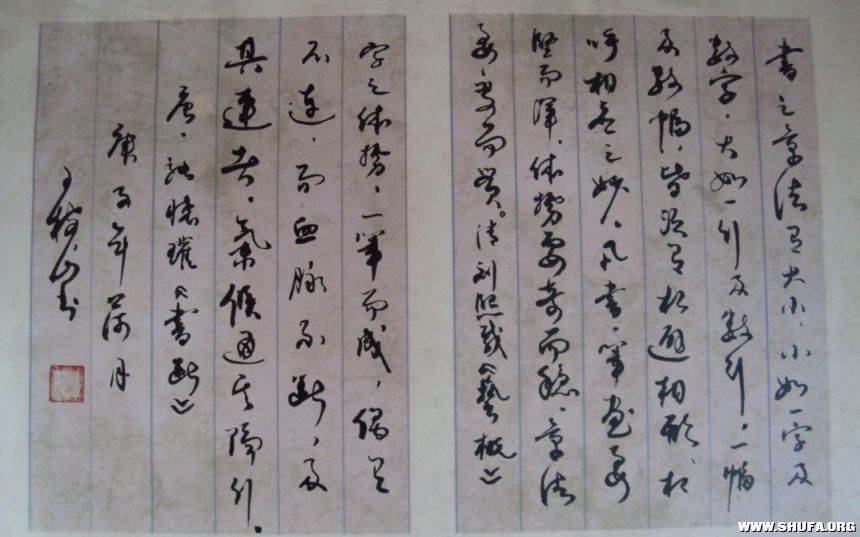 書之章法有大小,小如一字及
數字,大如一行及數行,一幅
及數幅,皆須有相避相形、相
呼相應之妙。凡書,筆畫要
堅而渾,体勢要奇而穩,章法
要變而貫。清刘熙载《藝概》
字之体势,一筆而成,偶有
不連,而血脉不断,及
其連者,氣候通其隔行。
唐、张怀瓘《書断》
庚子年荷月
山书
WWW.SHUFA.ORG